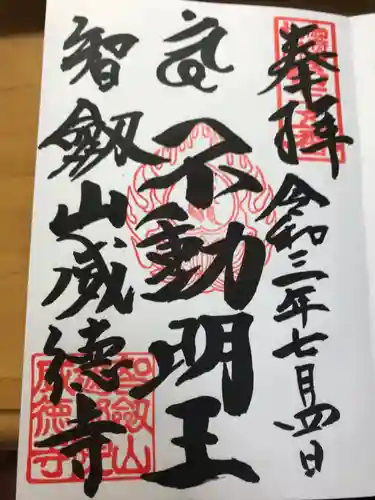 奉拝
令和三年七月四日
不動明王
智劔山威徳寺
智劔山
威徳寺